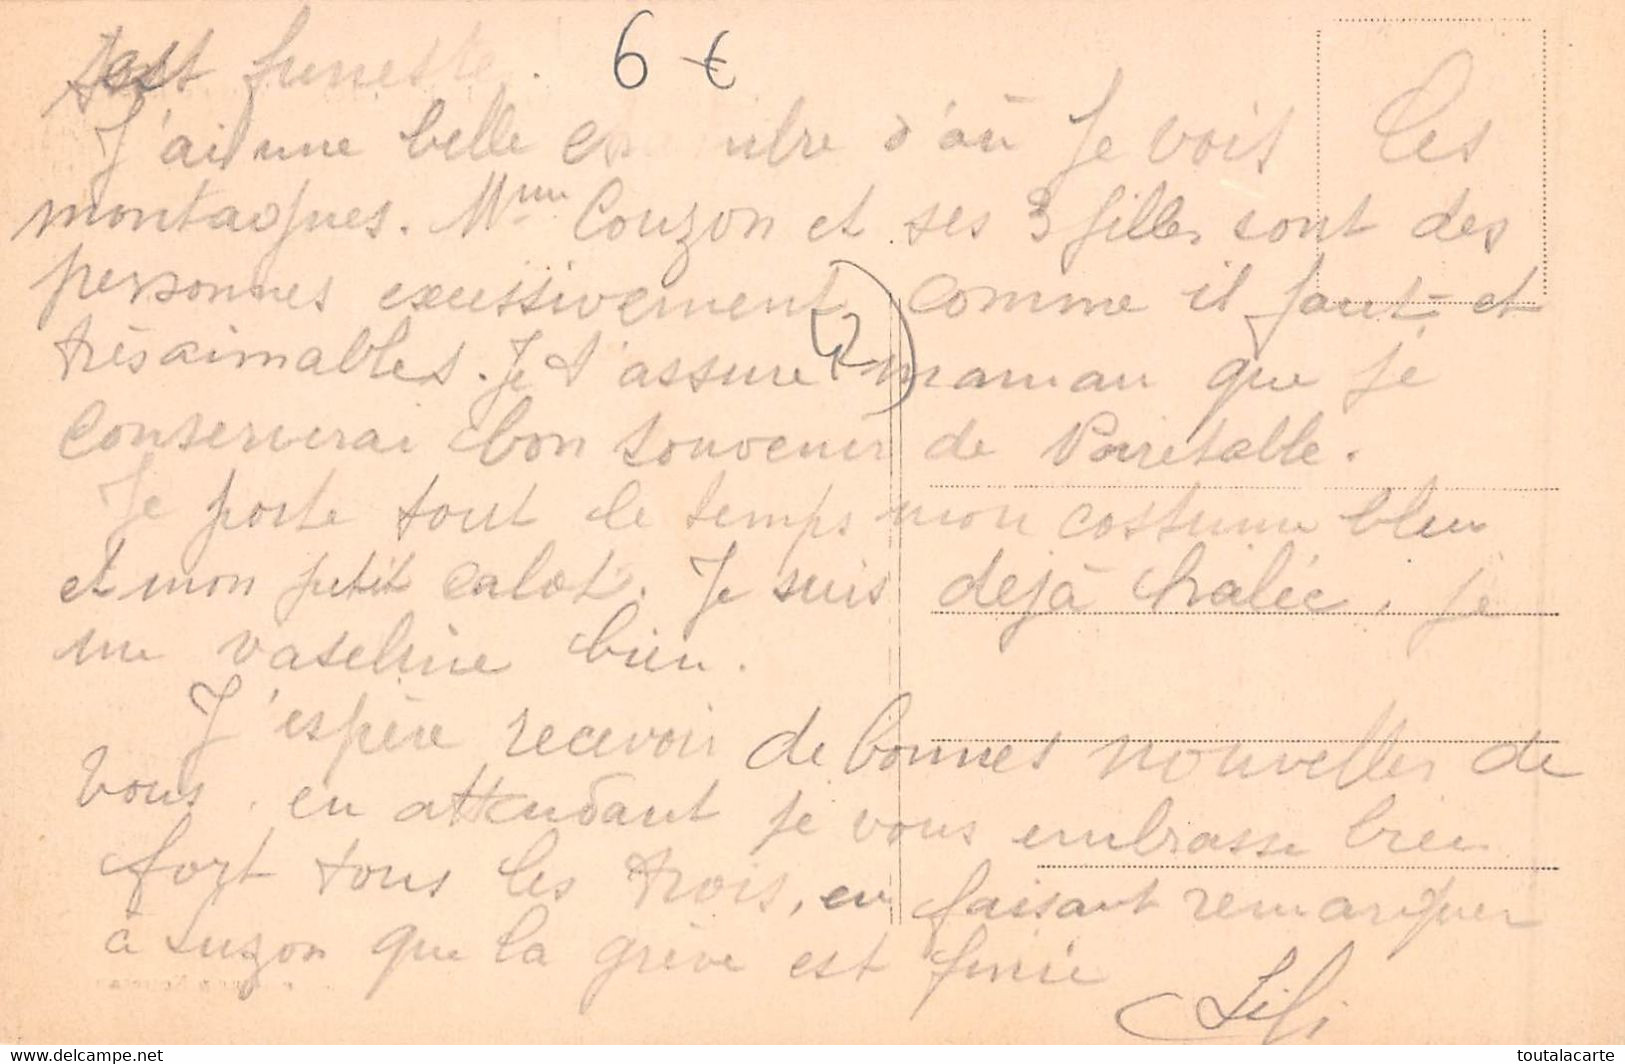 est funeste. 6 €
J'ai une belle chambre d'où je vois les
montagnes. Mme Couzon et ses 3 filles sont des
personnes excessivement comme il faut et
très aimables. Je t'assure maman que je
conserverai bon souvenir de Noiretable.
Je porte tout le temps mon costume bleu
et mon petit calot. Je suis dejà halée. je
me vaseline bien.
J'espère recevoir de bonnes nouvelles de
vous. en attendant je vous embrasse bien
fort tous les trois, en faisant remarquer
à Suzon que la grève est finie
Lili
delcampe.net
toutalacarte